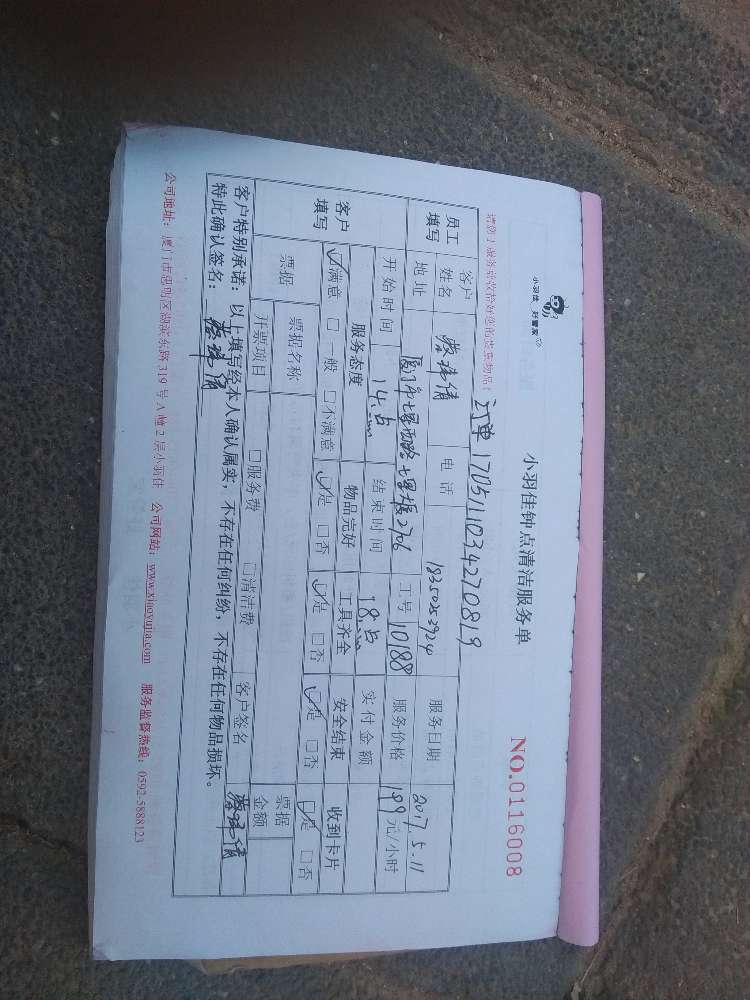 小羽佳 好管家
小羽佳钟点清洁服务单
NO.0116008
请您于服务前收拾好您的贵重物品! 订单 1705111034270819
员工填写 客户姓名 蔡 倩 电话 18350253924 服务日期 2017.5.11
地址 2706 工号 10188 服务价格 199 元/小时
开始时间 14点 结束时间 18点 实付金额
客户填写 服务态度 物品完好 工具齐全 安全结束 收到卡片
☑满意 □一般 □不满意 ☑是 □否 ☑是 □否 ☑是 □否 ☑是 □否
票据 票据名称 票据金额
开票项目 □服务费 □清洁费 客户签名 蔡 倩
客户特别承诺：以上填写经本人确认属实，不存在任何纠纷，不存在任何物品损坏。
特此确认签名： 蔡 倩
公司地址：厦门市思明区湖滨东路 319 号 A 幢 2 层小羽佳 公司网站：www.xiaoyujia.com 服务监督热线：0592-5888123